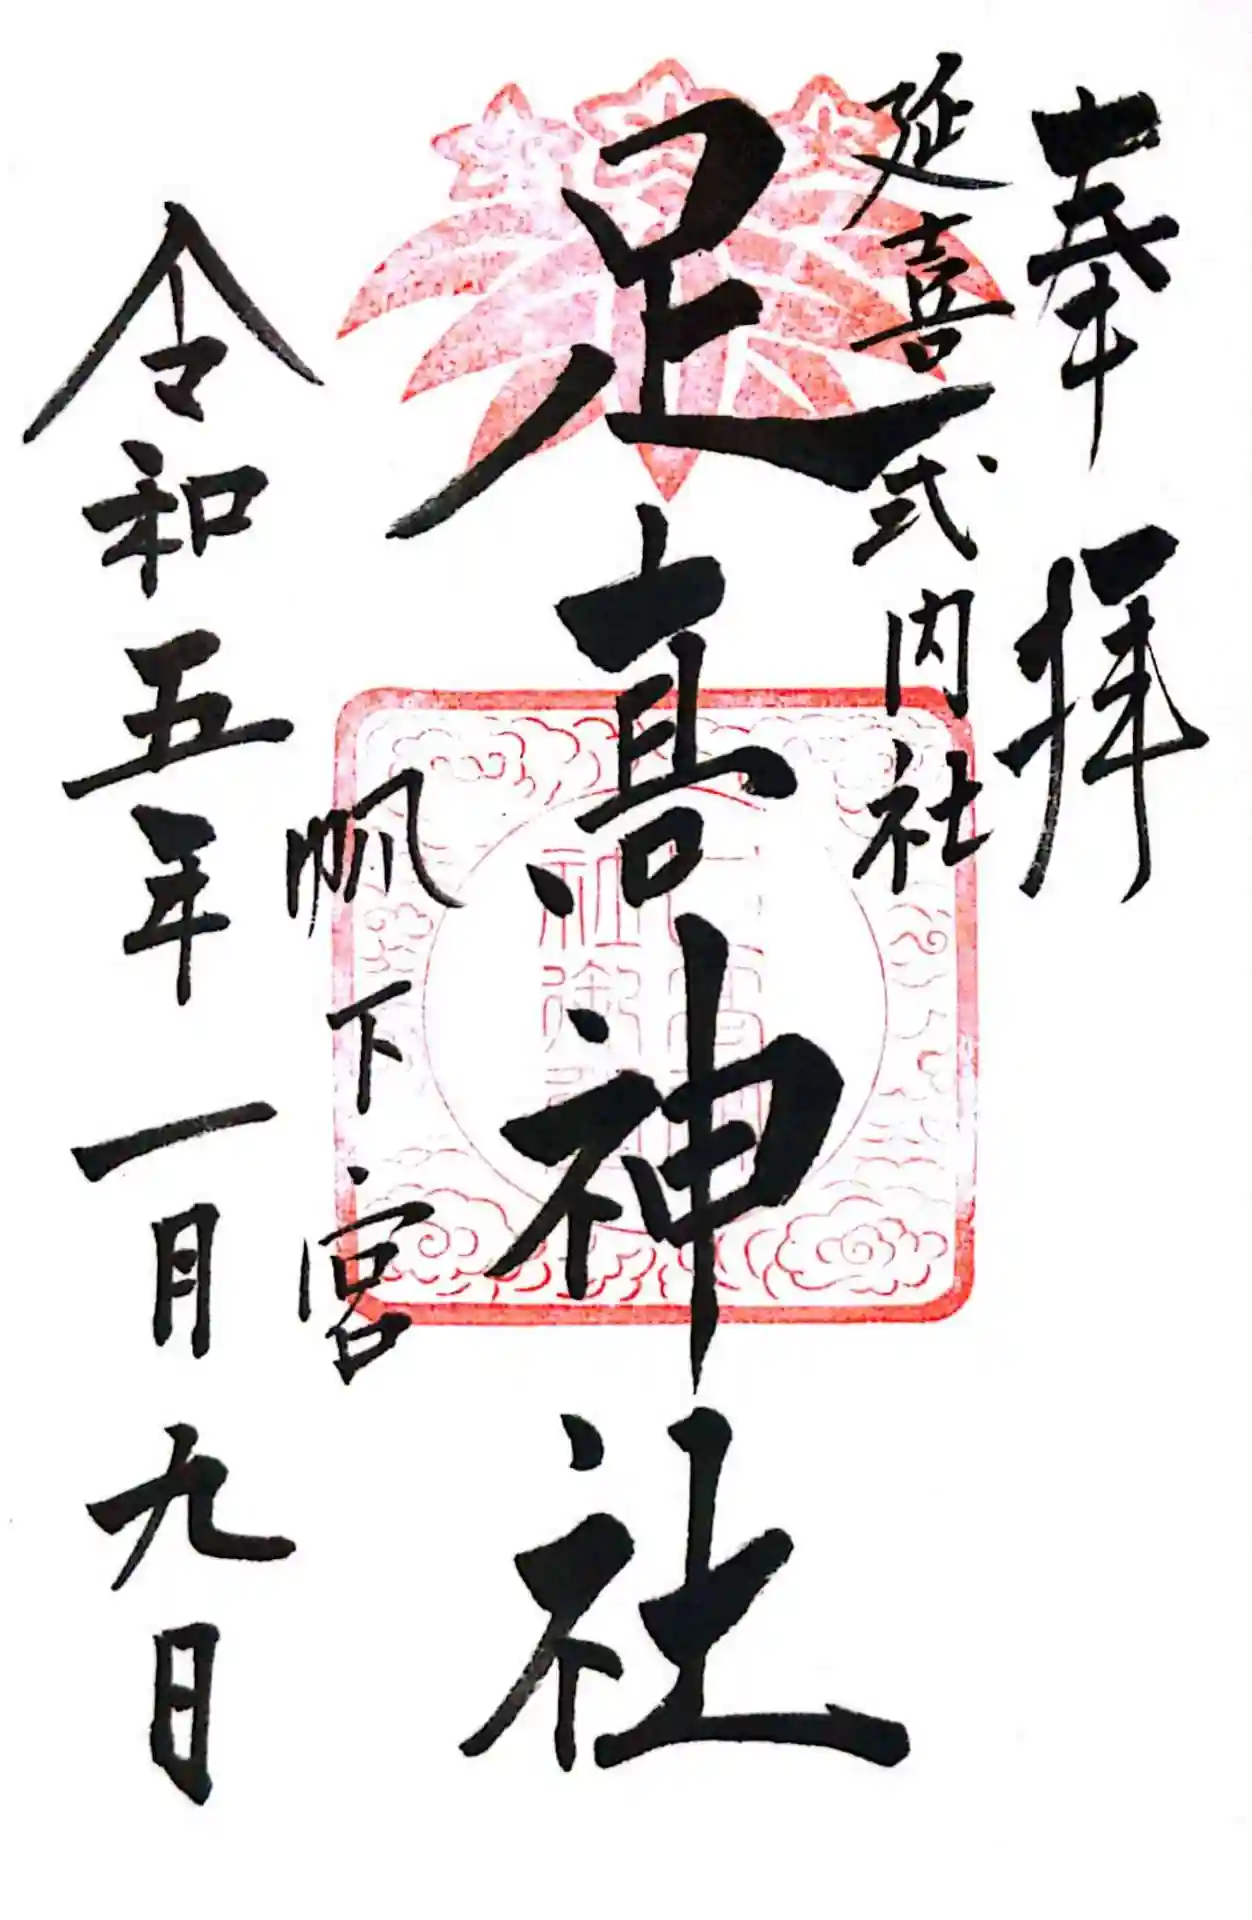 奉拝
延喜式内社
足髙神社
帆下宮
令和五年一月九日